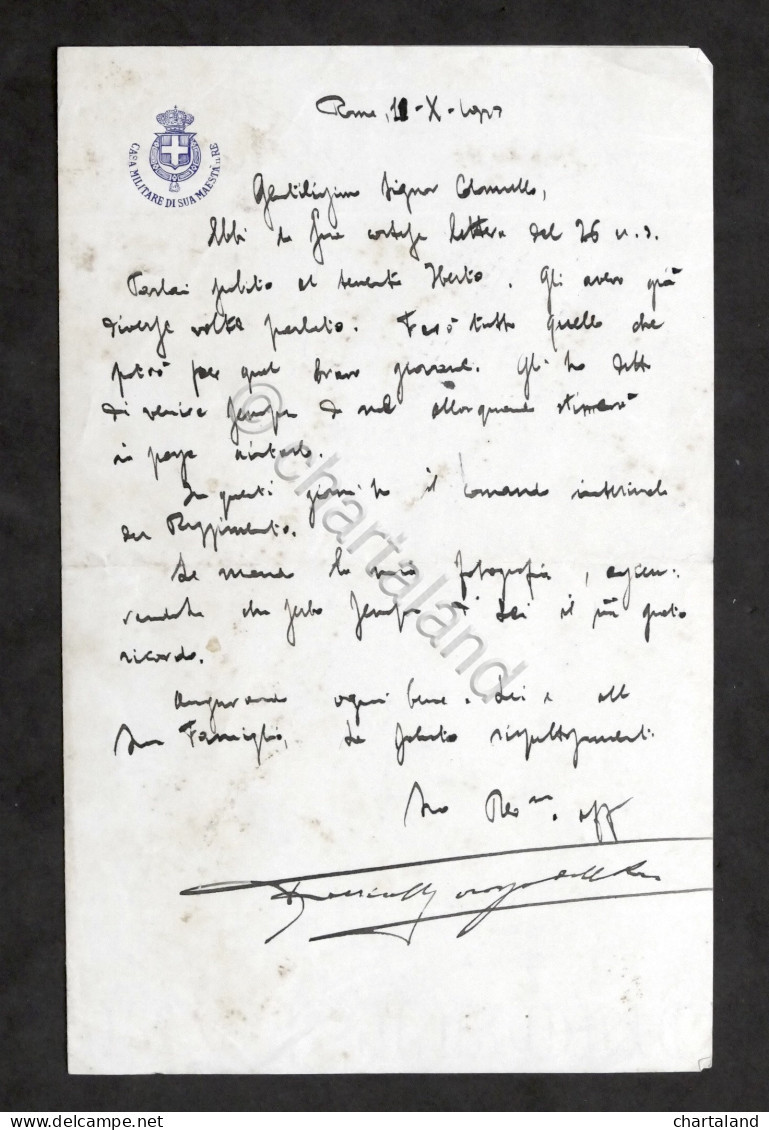 CASA MILITARE DI SUA MAESTÀ IL RE
Roma, 11-X-
Gentilissimo Signor Colonnello,
Ebbi la Sua cortese lettera del 26 u.s.
Parlai subito al tenente . Gli avevo già
diverse volte parlato. Farò tutto quello che
potrò per quel bravo giovane. Gli ho detto
di venire sempre da me allorquando stimerà
io possa aiutarlo.
In questi giorni ho il comando interinale
del Reggimento.
Le mando la mia fotografia, assicu-
randola che serbo sempre di Lei il più grato
ricordo.
Augurando ogni bene a Lei e alla
Sua Famiglia, La saluto rispettosamente.
Suo aff
© chartaland
chartaland